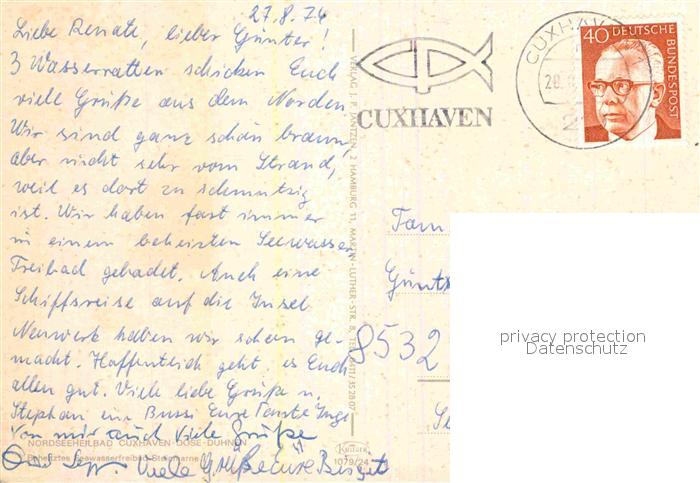 27.8.74
Liebe Renate, lieber Günter!
3 Wasserratten schicken Euch
viele Grüße aus dem Norden.
Wir sind ganz schön braun,
aber nicht sehr vom Strand,
weil es dort zu schmutzig
ist. Wir haben fast immer
in einem beheizten Seewasser
Freibad gebadet. Auch eine
Schiffsreise auf die Insel
Neuwerk haben wir schon ge-
macht. Hoffentlich geht es Euch
allen gut. Viele liebe Grüße u.
Stephan ein Bussi Eure Tante Inge
Von mir auch viele Grüße
Sepp. Viele Grüße Eure Birgit
NORDSEEHEILBAD CUXHAVEN-DÖSE-DUHNEN
Beheiztes Seewasserfreibad Steinmarne
VERLAG J. P. JANTZEN, 2 HAMBURG 11, MARTIN-LUTHER-STR. 8, TEL. 0411/35 28 07
Krüger
1079/24
CUXHAVEN
CUXHAV
40 DEUTSCHE
BUNDESPOST
Fam
Günt
8532
privacy protection
Datenschutz